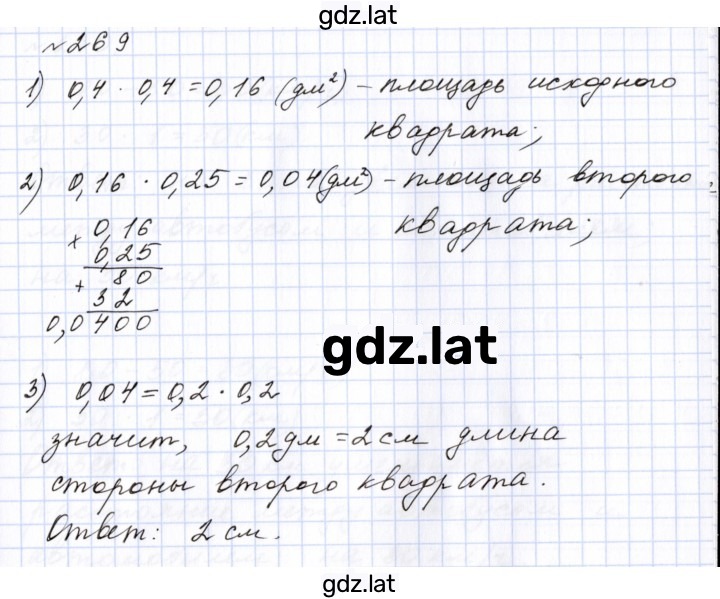 gdz.lat
№269
1) 0,4 · 0,4 = 0,16 (дм²) – площадь исходного
квадрата;
2) 0,16 · 0,25 = 0,04 (дм²) – площадь второго
квадрата;
× 0,16
0,25
+ 80
32
0,0400
gdz.lat
3) 0,04 = 0,2 · 0,2
значит, 0,2 дм = 2 см длина
стороны второго квадрата.
Ответ: 2 см.
gdz.lat